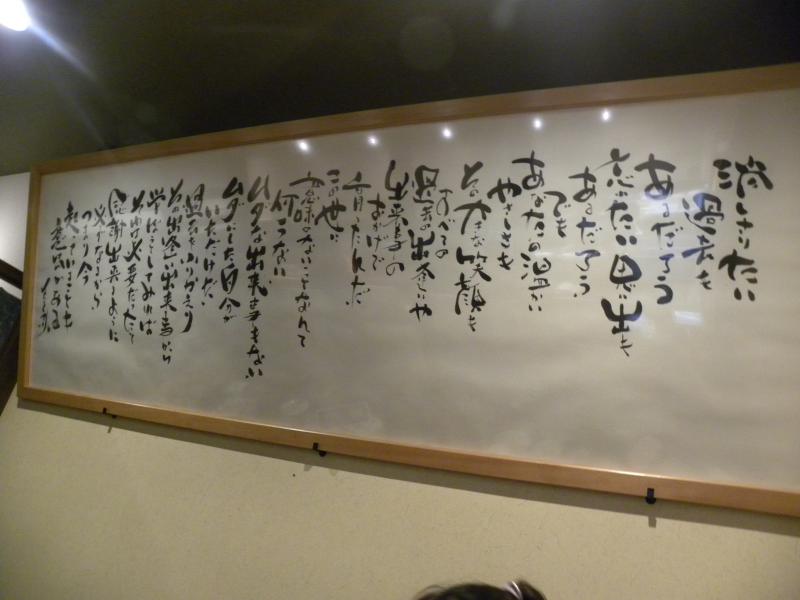 消しさりたい
過去も
あるだろう
忘れたい思い出も
あるだろう
でも
あなたの温かい
やさしさも
その大きな笑顔も
すべての
過去の出逢いや
出来事の
おかげで
育ったんだ
この世に
意味のないことなんて
何一つない
ムダな出来事もない
ムダにした自分が
いただけだ
過去をふりかえり
その出逢い出来事から
学ばさしてみれば
それは必要だったと
感謝出来るように
必ずなるから
つまり今
起こっていることも
意味がある